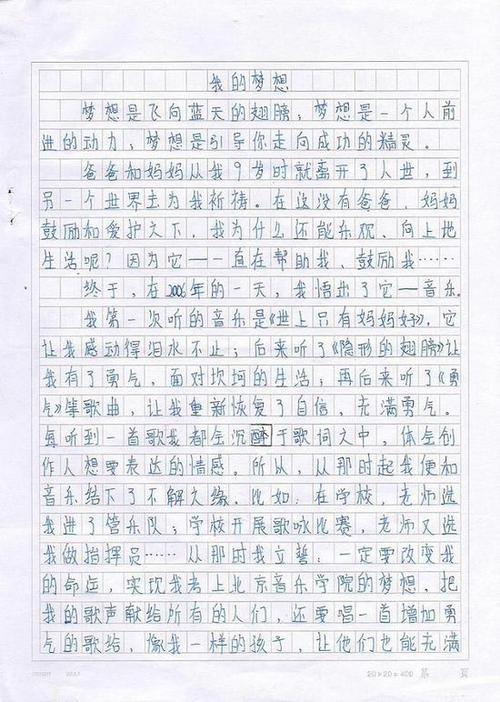 我的梦想
梦想是飞向蓝天的翅膀；梦想是一个人前
进的动力；梦想是引导你走向成功的精灵。
爸爸和妈妈从我9岁时就离开了人世，到
另一个世界去为我祈祷。在这没有爸爸，妈妈
鼓励和爱护之下，我为什么还能乐观、向上地
生活呢？因为它——直在帮助我、鼓励我……
终于，在2006年的一天，我悟出了它—音乐.
我第一次听的音乐是《世上只有妈妈好》，它
让我感动得泪水不止；后来听了《隐形的翅膀》让
我有了勇气，面对坎坷的生活；再后来听了《勇
气》等歌曲，让我重新恢复了自信，充满勇气。
每听到一首歌我都会沉醉于歌词文中，体会创
作人想要表达的情感。所以，从那时起我便和
音乐结下了不解文缘。比如：在学校，老师选
我进了管乐队；学校开展歌咏比赛，老师又选
我做指挥员……从那时我立誓：一定要改变我
的命运，实现我考上北京音乐学院的梦想。把
我的歌声献给所有的人们，还要唱一首增加勇
气的歌给，像我一样的孩子，让他们也能充满
20×20=400 第 页